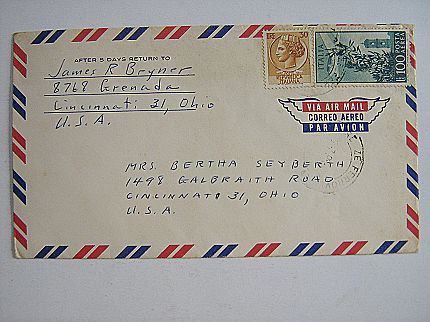 AFTER 5 DAYS RETURN TO
James R Bryner
8768 Grenada
Cincinnati 31, Ohio
U.S.A.
100
POSTA AEREA
VIA AIR MAIL
CORREO AEREO
PAR AVION
MRS. BERTHA SEYBERTH
1498 GALBRAITH ROAD
CINCINNATI 31, OHIO
U.S.A.